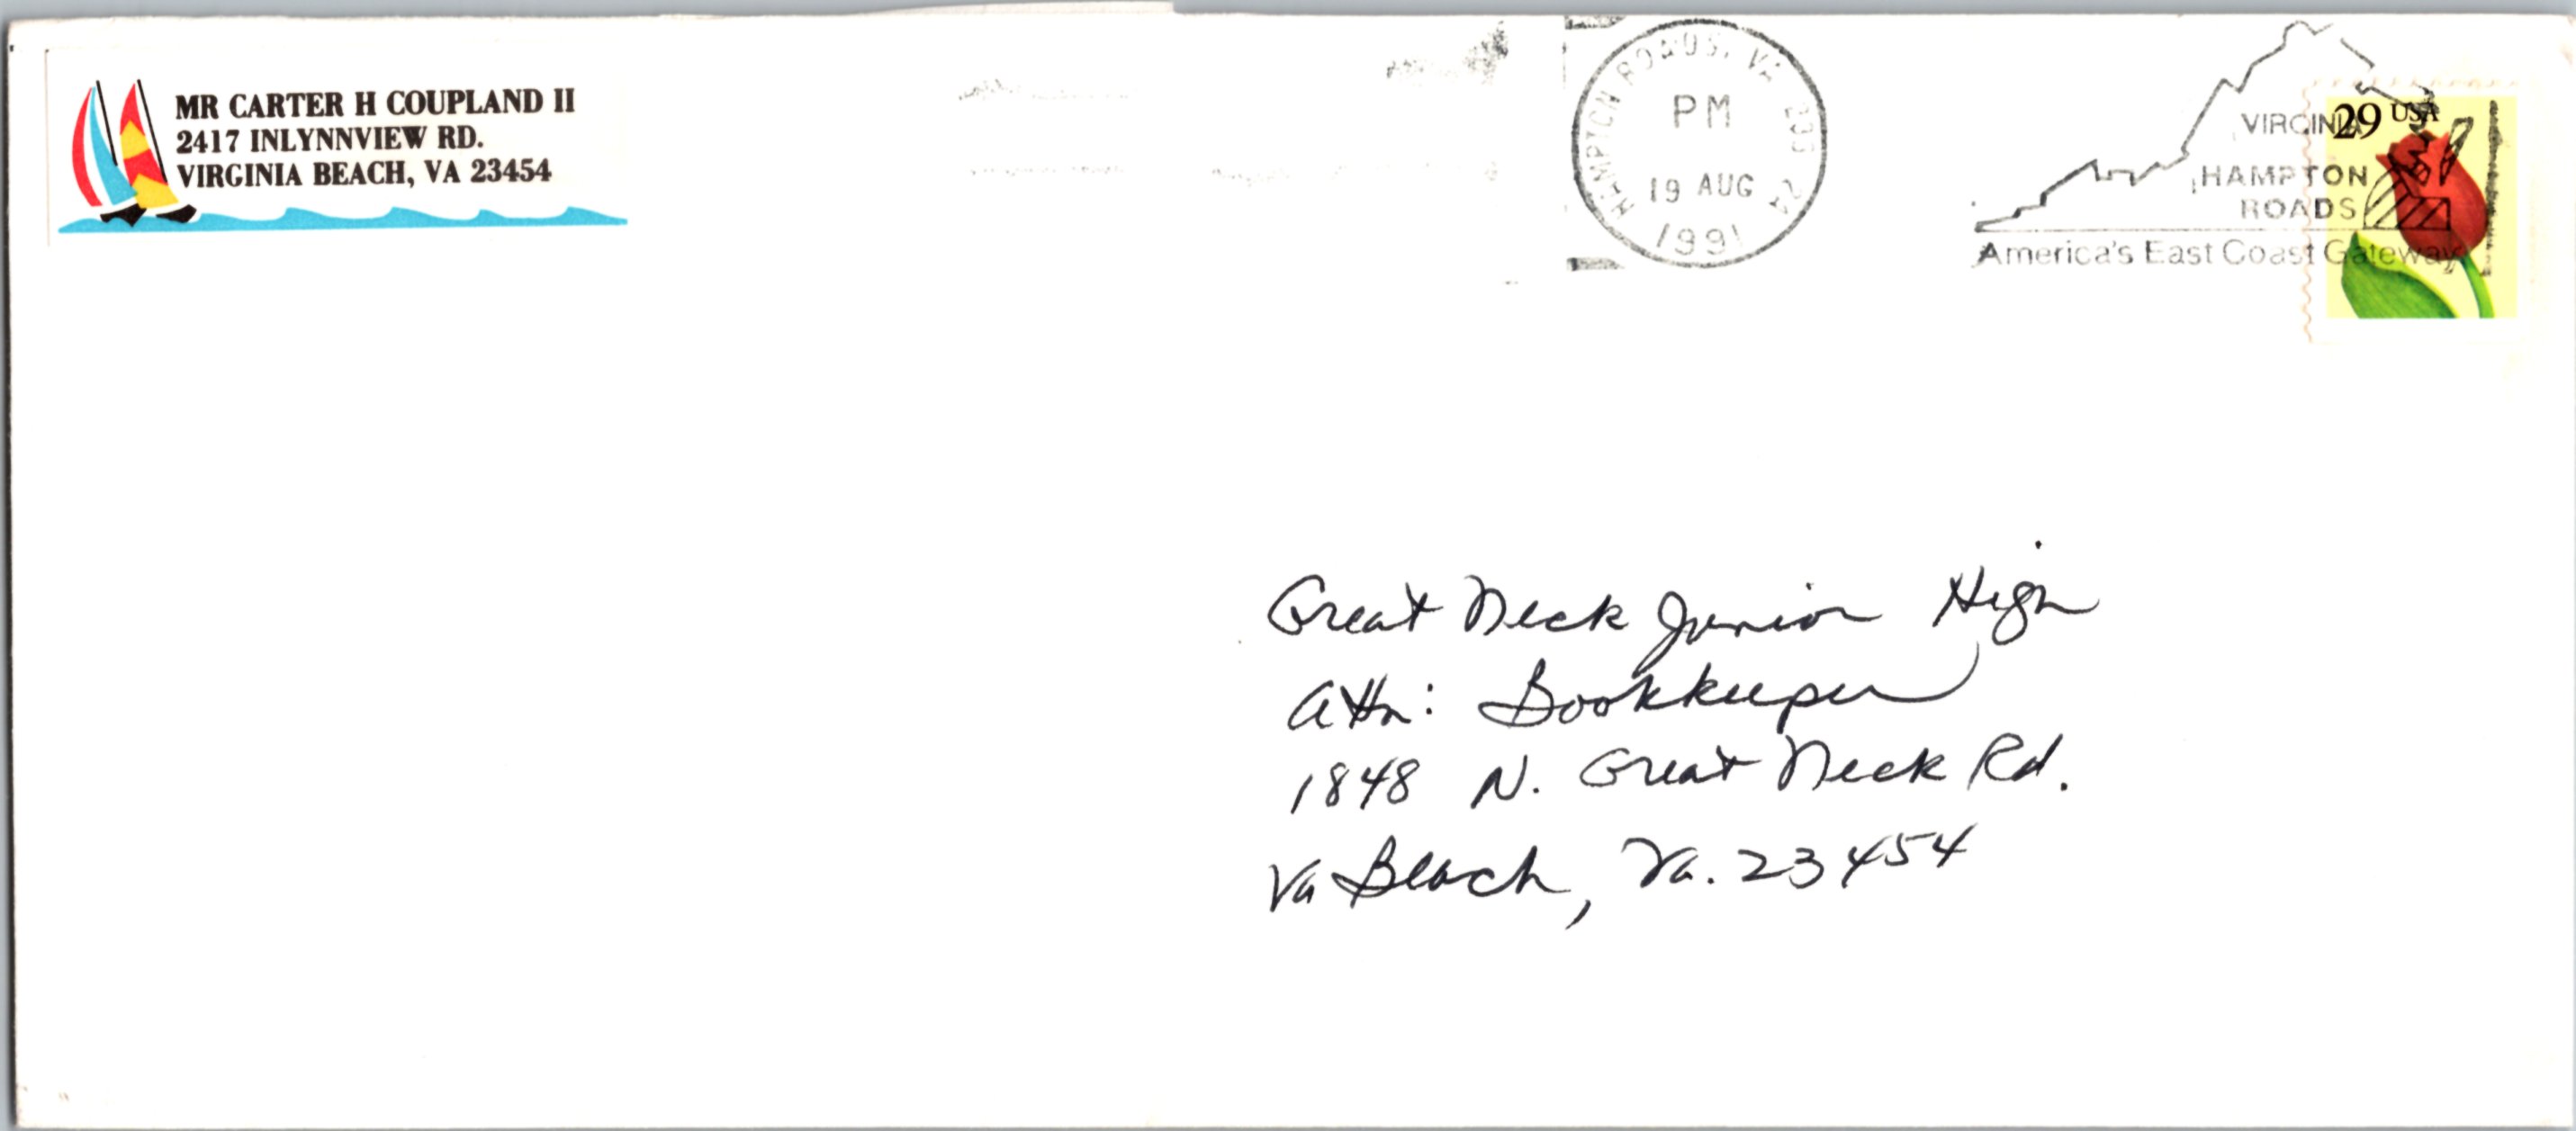 MR CARTER H COUPLAND II
2417 INLYNNVIEW RD.
VIRGINIA BEACH, VA 23454
HAMPTON ROADS, VA
PM
19 AUG
1991
VIRGINIA
HAMPTON
ROADS
America's East Coast Gateway
29 USA
Great Neck Junior High
Attn: Bookkeeper
1848 N. Great Neck Rd.
Va Beach, Va. 23454